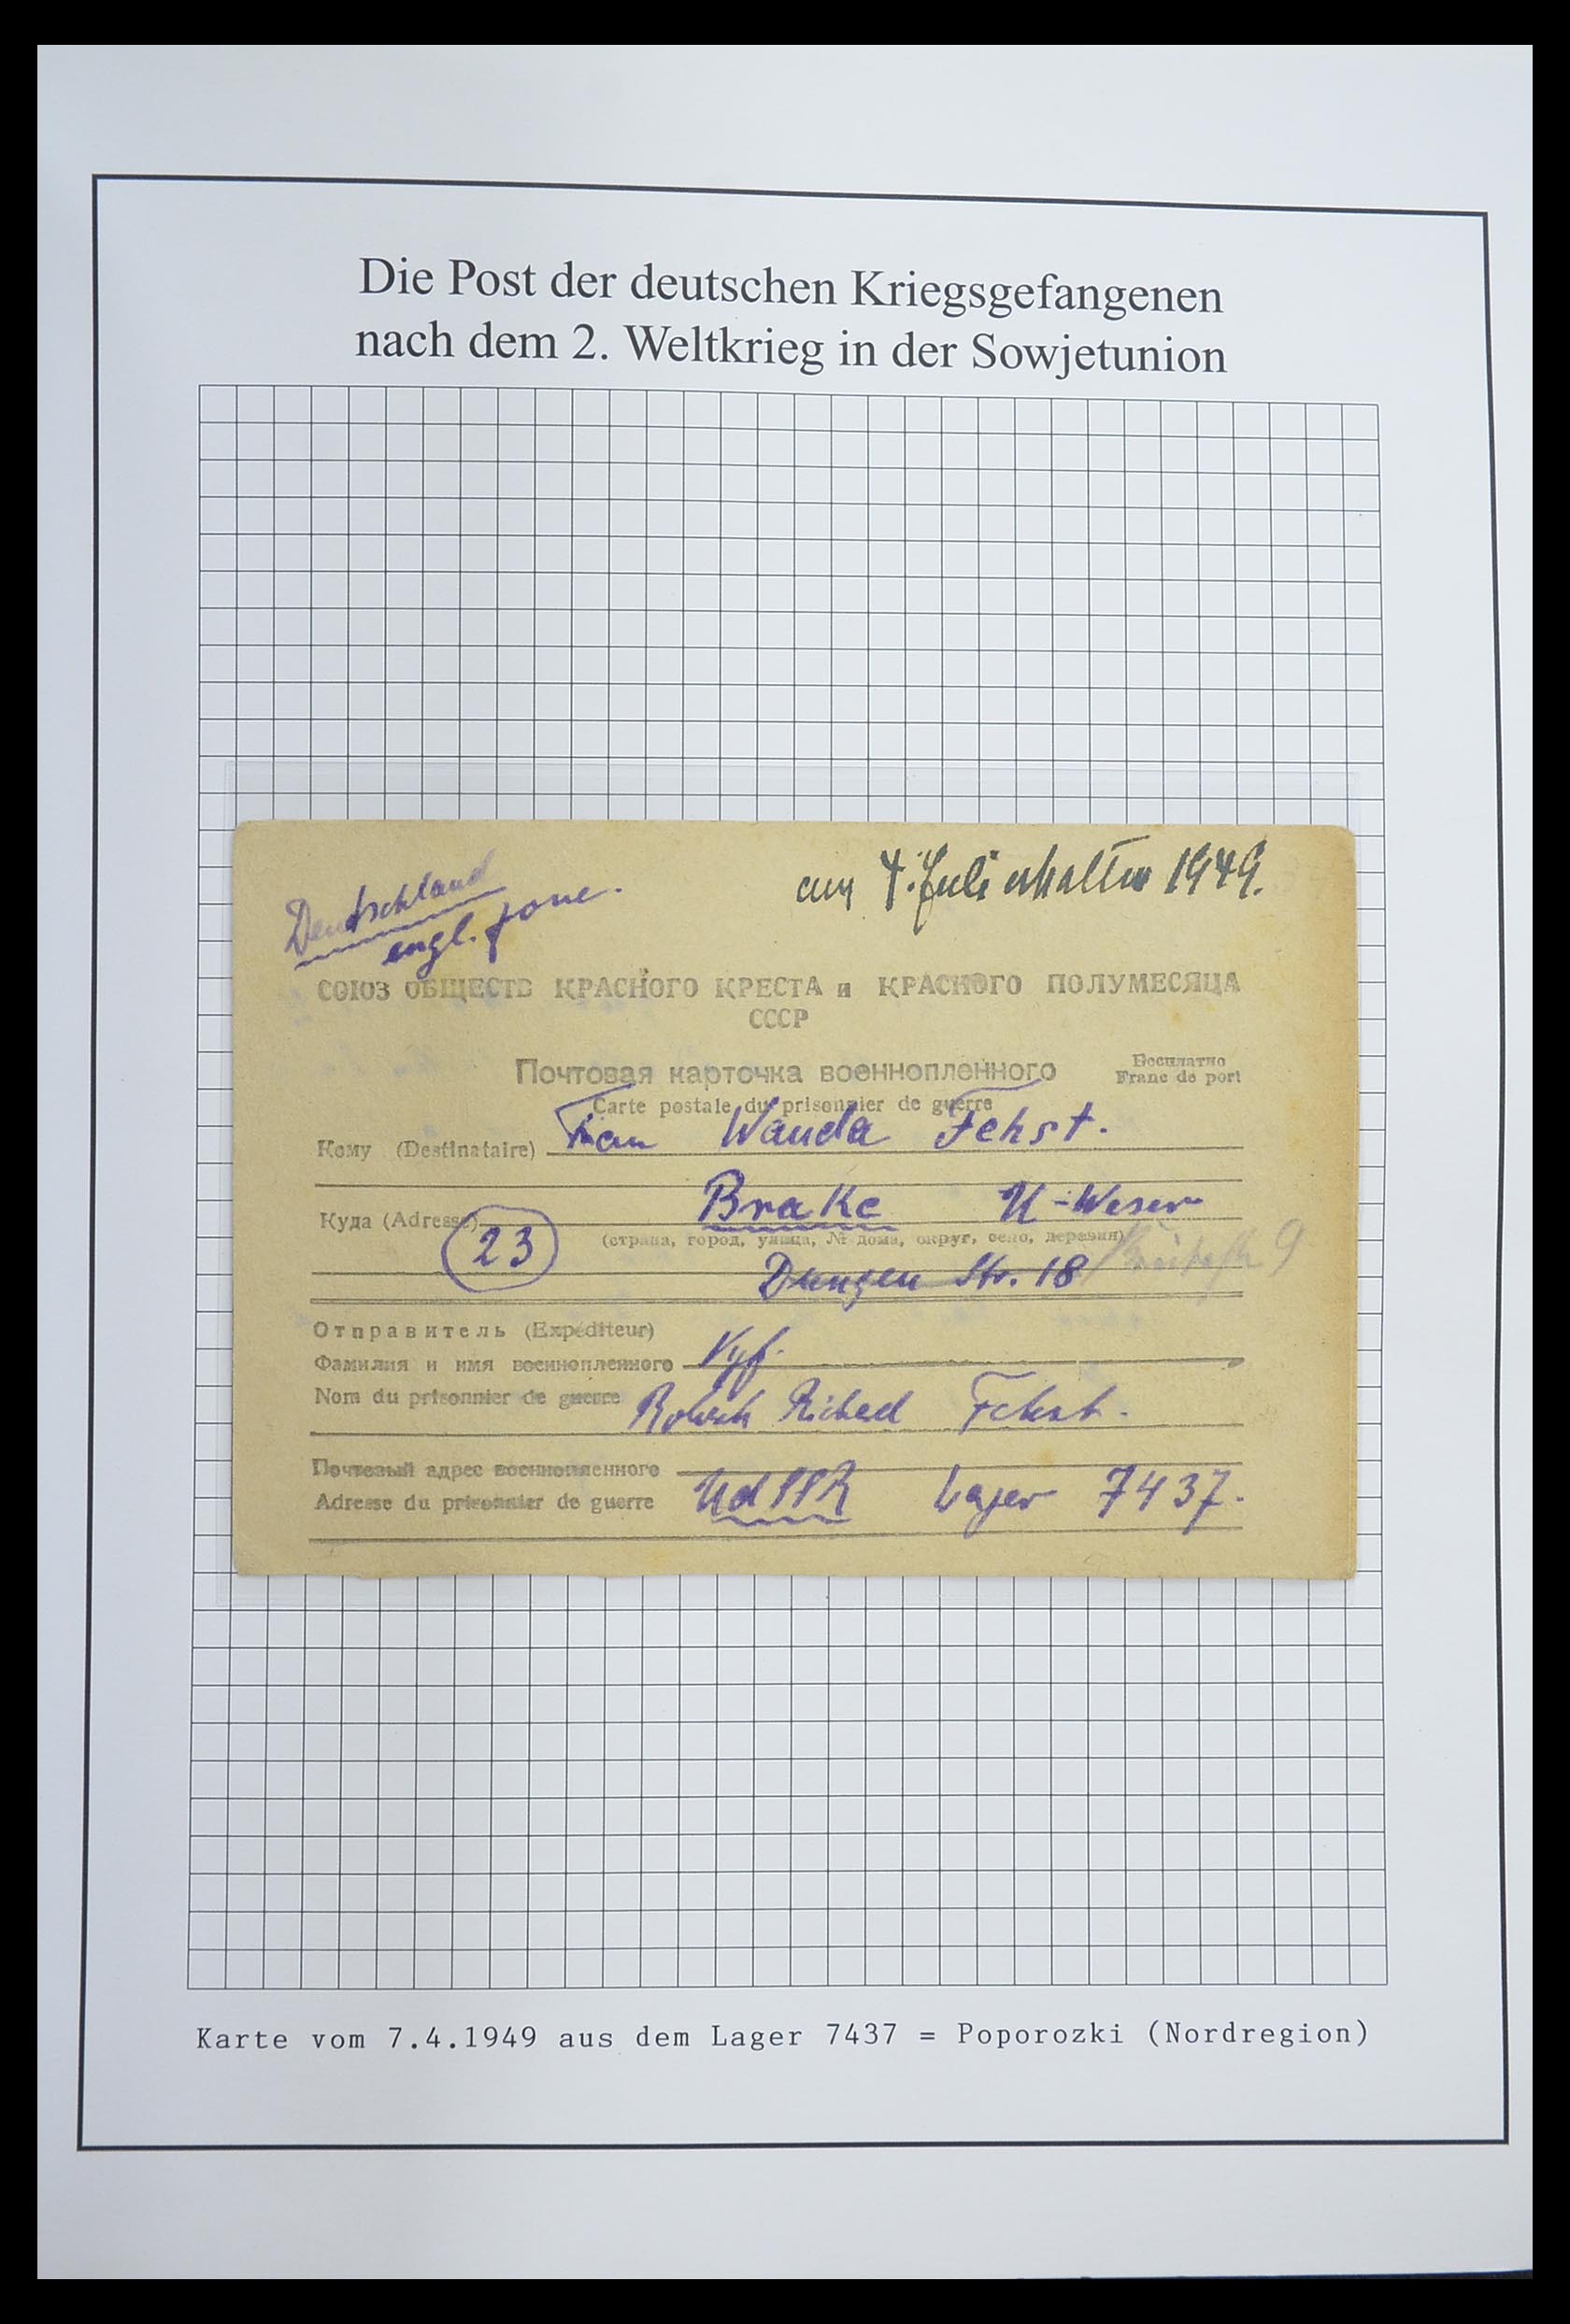 Die Post der deutschen Kriegsgefangenen
nach dem 2. Weltkrieg in der Sowjetunion
am 4. Juli erhalten 1949.
Deutschland
engl. Zone.
СОЮЗ ОБЩЕСТВ КРАСНОГО КРЕСТА и КРАСНОГО ПОЛУМЕСЯЦА
СССР
Почтовая карточка военнопленного
Бесплатно
Franc de port
Carte postale du prisonnier de guerre
Кому (Destinataire) Frau Wanda Fehst.
Brake U-Weser
Куда (Adresse)
23
(страна, город, улица, № дома, округ, село, деревня)
Dungen Str. 18 9
Отправитель (Expéditeur)
Фамилия и имя военнопленного Kgf.
Nom du prisonnier de guerre Fehst.
Почтовый адрес военнопленного
Adresse du prisonnier de guerre UdSSR Lager 7437.
Karte vom 7.4.1949 aus dem Lager 7437 = Poporozki (Nordregion)